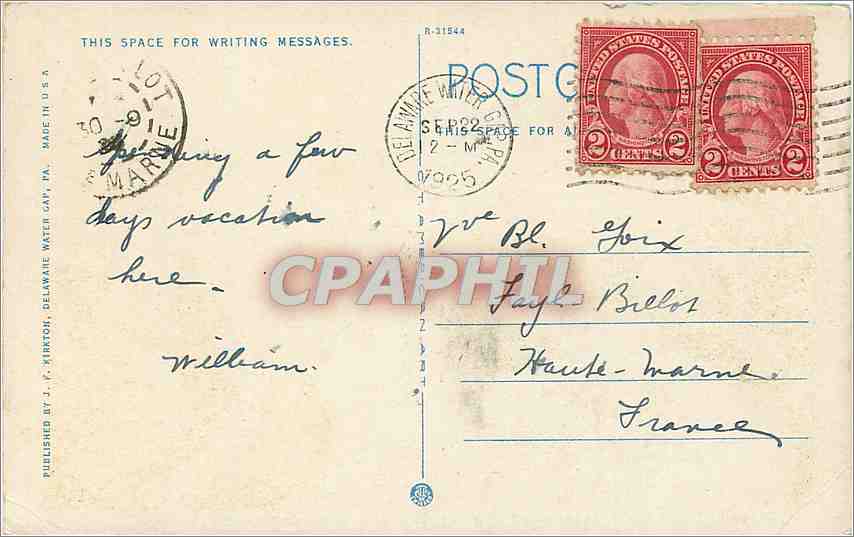 R-31544
THIS SPACE FOR WRITING MESSAGES.
POST C
THIS SPACE FOR A
UNITED STATES POSTAGE
2 CENTS 2
UNITED STATES POSTAGE
2 CENTS 2
DELAWARE WATER GAP, PA.
SEP 22
2 - M
1925
LOT
30 - 9
MARNE
Spending a few
days vacation
here.
William.
Vve Bl. Goix
Fayl-Billot
Haute-Marne.
France
CPAPHIL
PUBLISHED BY J. F. KIRKTON, DELAWARE WATER GAP, PA. MADE IN U S A